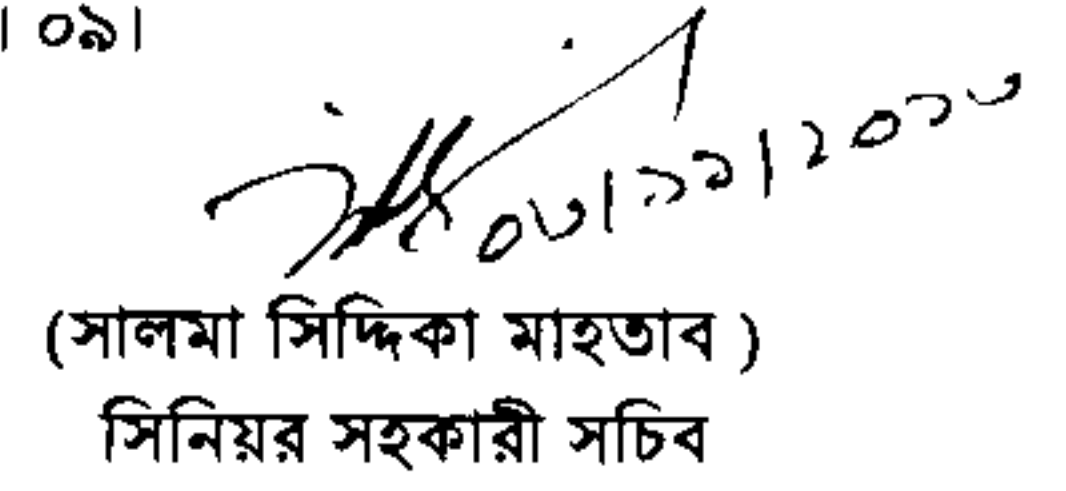 । ০৯।
০৩।১১।২০১৩
(সালমা সিদ্দিকা মাহতাব )
সিনিয়র সহকারী সচিব